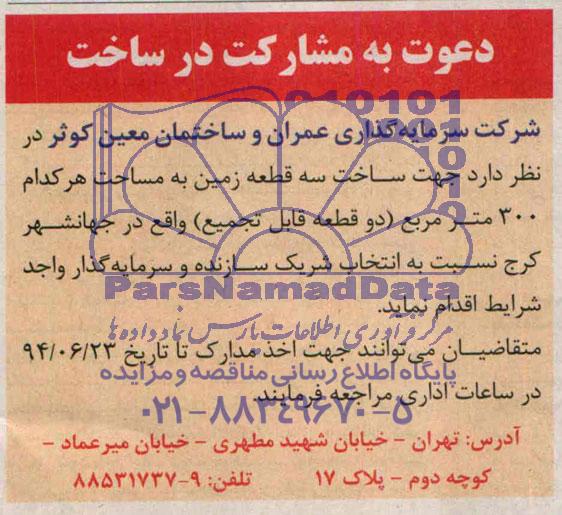 دعوت به مشارکت در ساخت
شرکت سرمایه‌گذاری عمران و ساختمان معین کوثر در
نظر دارد جهت ساخت سه قطعه زمین به مساحت هرکدام
۳۰۰ متر مربع (دو قطعه قابل تجمیع) واقع در جهانشهر
کرج نسبت به انتخاب شریک سازنده و سرمایه‌گذار واجد
ParsNamadData
شرایط اقدام نماید.
مرکز فرآوری اطلاعات پارس نماد داده‌ها
متقاضیان می‌توانند جهت اخذ مدارک تا تاریخ ۹۴/۰۶/۲۳
پایگاه اطلاع رسانی مناقصه و مزایده
در ساعات اداری مراجعه فرمایند.
۰۲۱-۸۸۳۴۹۶۷۰-۵
آدرس: تهران - خیابان شهید مطهری - خیابان میرعماد -
کوچه دوم - پلاک ۱۷ تلفن: ۹-۸۸۵۳۱۷۳۷